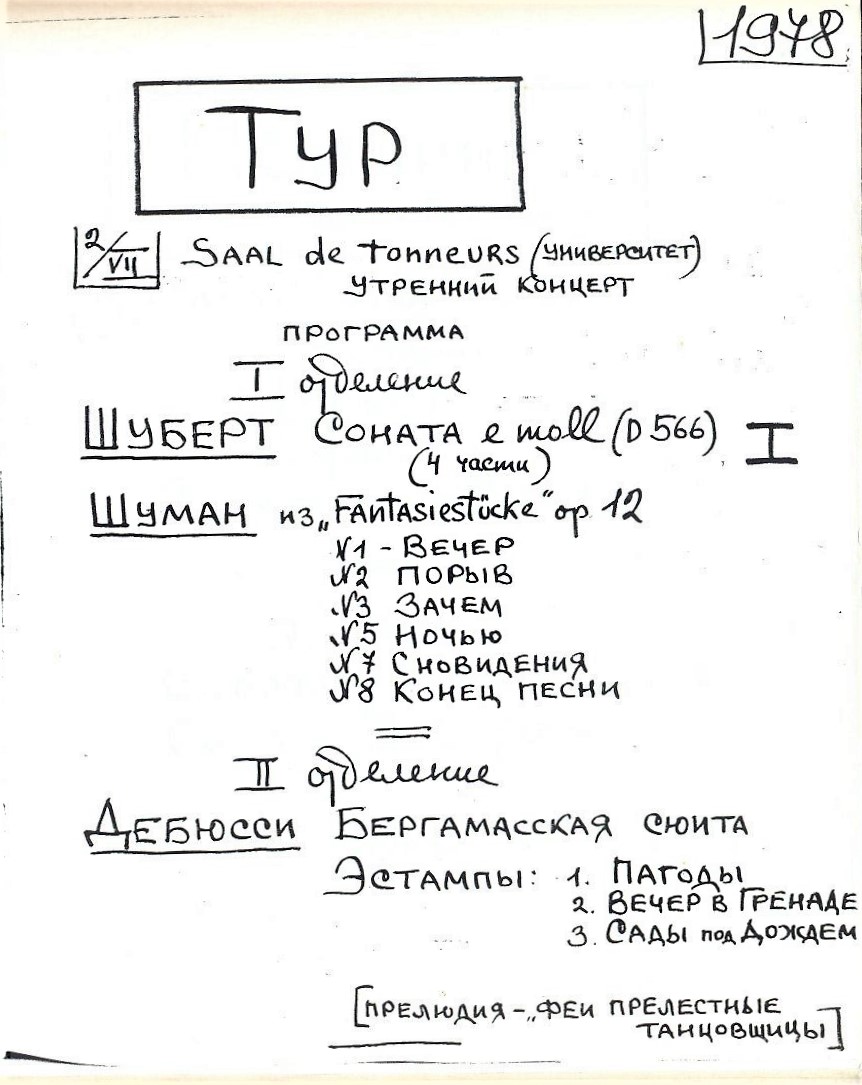 1978
Тур
2/VII SAAL de TONNEURS (УНИВЕРСИТЕТ)
УТРЕННИЙ КОНЦЕРТ
ПРОГРАММА
I отделение
ШУБЕРТ СОНАТА e moll (D 566) I
(4 части)
ШУМАН из „FANTASIESTÜCKE“ op 12
N1 - ВЕЧЕР
N2 ПОРЫВ
N3 ЗАЧЕМ
N5 НОЧЬЮ
N7 СНОВИДЕНИЯ
N8 КОНЕЦ ПЕСНИ
II отделение
ДЕБЮССИ БЕРГАМАССКАЯ СЮИТА
ЭСТАМПЫ: 1. ПАГОДЫ
2. ВЕЧЕР В ГРЕНАДЕ
3. САДЫ под ДОЖДЕМ
[ПРЕЛЮДИЯ - „ФЕИ ПРЕЛЕСТНЫЕ
ТАНЦОВЩИЦЫ]